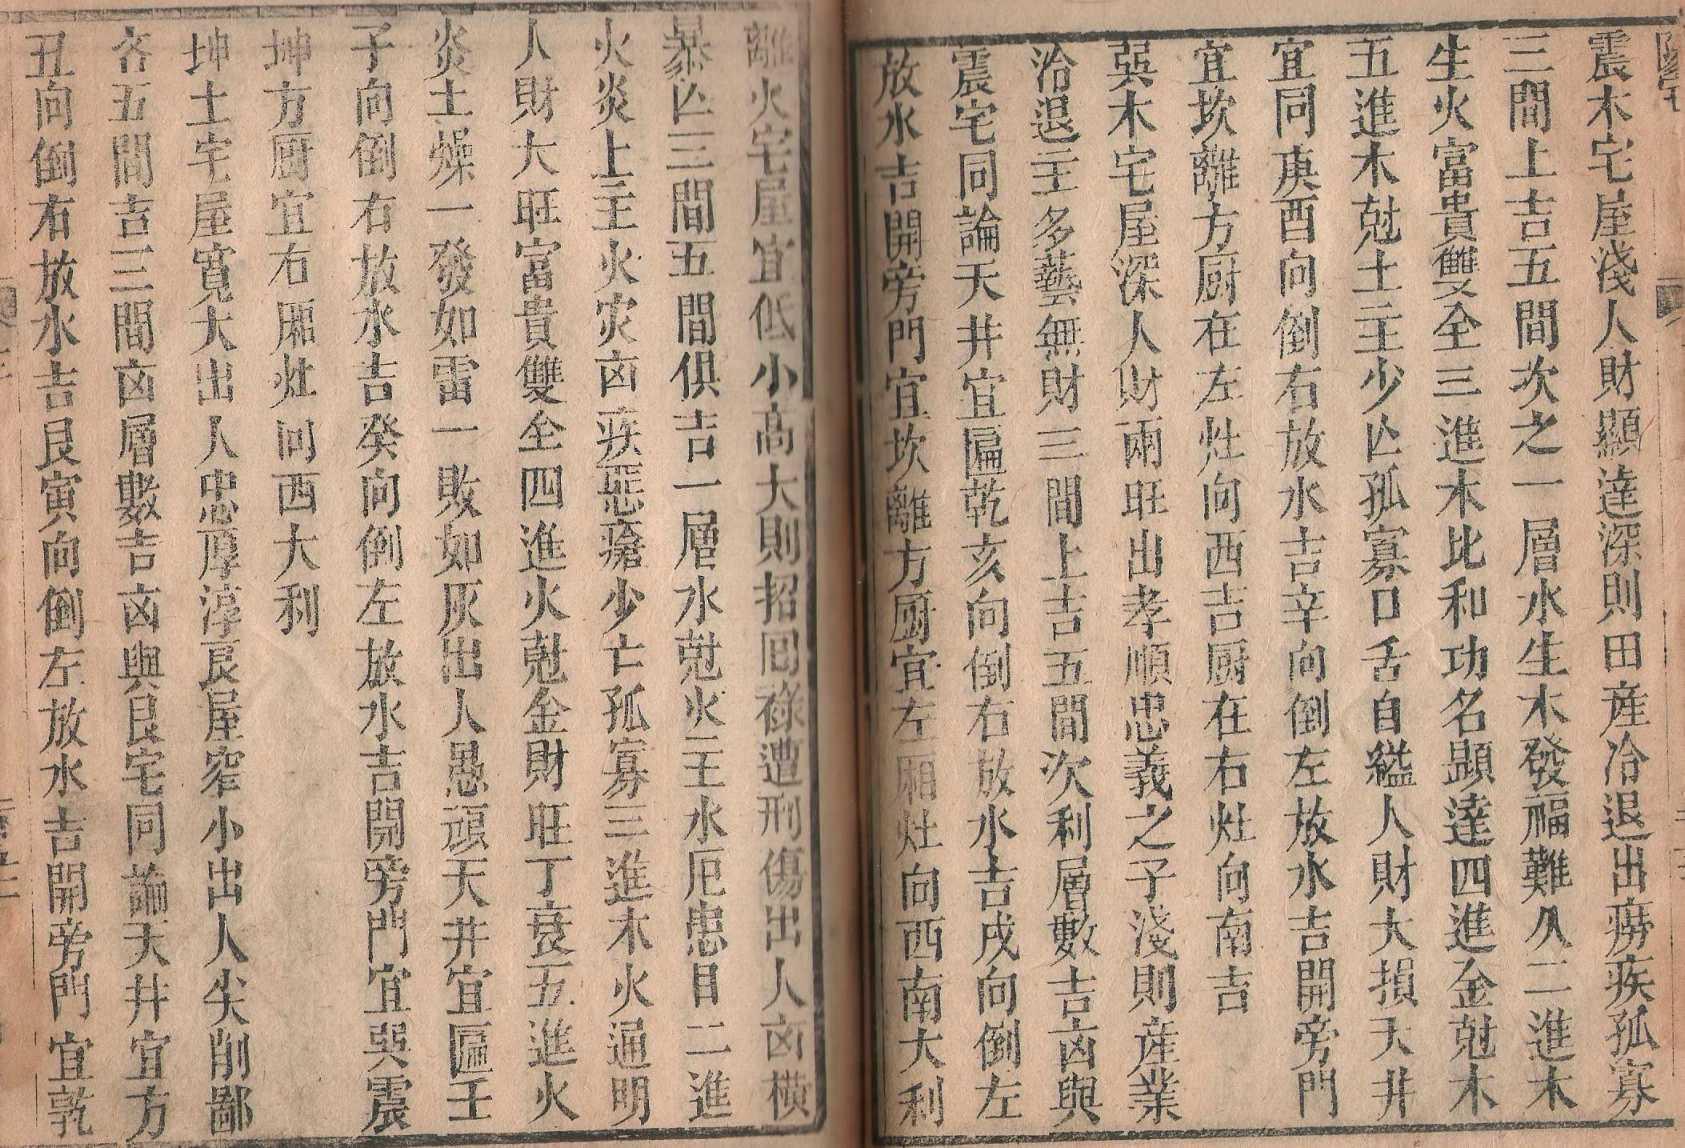 震木宅屋淺人財顯達深則田產冷退出癆疾孤寡
三間上吉五間次之一層水生木發福難久二進木
生火富貴雙全三進木比和功名顕達四進金尅木
五進木尅土主少亾孤寡口舌自縊人財大損天井
宜同庚酉向倒右放水吉辛向倒左放水吉開旁門
宜坎離方厨在左灶向西吉厨在右灶向南吉
巽木宅屋深人財兩旺出孝順忠義之子淺則産業
冷退主多藝無財三間上吉五間次利層數吉凶與
震宅同論天井宜匾乾亥向倒右放水吉戌向倒左
放水吉開旁門宜坎離方厨宜左厢灶向西南大利
離火宅屋宜低小高大則招回祿遭刑傷出人凶橫
暴亾三間五間俱吉一層水尅火主水厄患目二進
火炎上主火灾凶疾惡瘡少亡孤寡三進木火通明
人財大旺富貴雙全四進火尅金財旺丁衰五進火
炎土燥一發如雷一敗如灰出人愚頑天井宜匾壬
子向倒右放水吉癸向倒左放水吉開旁門宜巽震
坤方厨宜右厢灶向西大利
坤土宅屋寬大出人忠厚淳良屋窄小出人尖削鄙
吝五間吉三間凶層數吉凶與艮宅同論天井宜方
丑向倒右放水吉艮寅向倒左放水吉開旁門宜乾